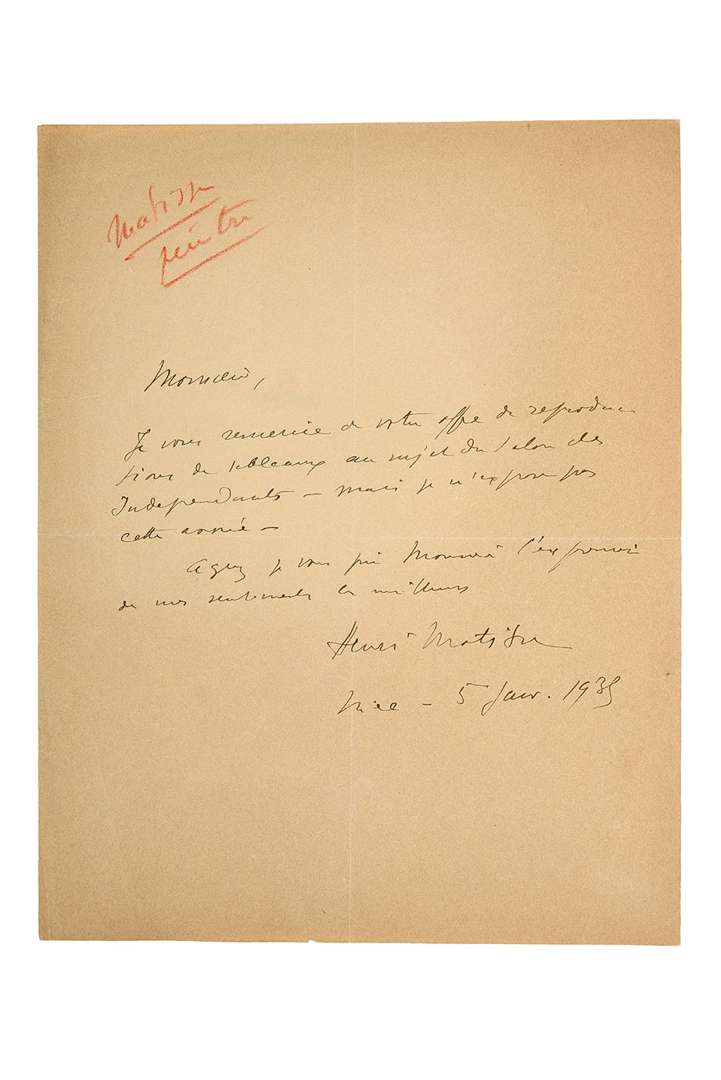 Matisse
peintre
Monsieur,
Je vous remercie de votre offre de reproduc
tions de tableaux au sujet du Salon des
Independants – mais je n'expose pas
cette année –
Agréez je vous prie Monsieur l'expression
de mes sentiments les meilleurs
Henri Matisse
Nice – 5 janv. 1935